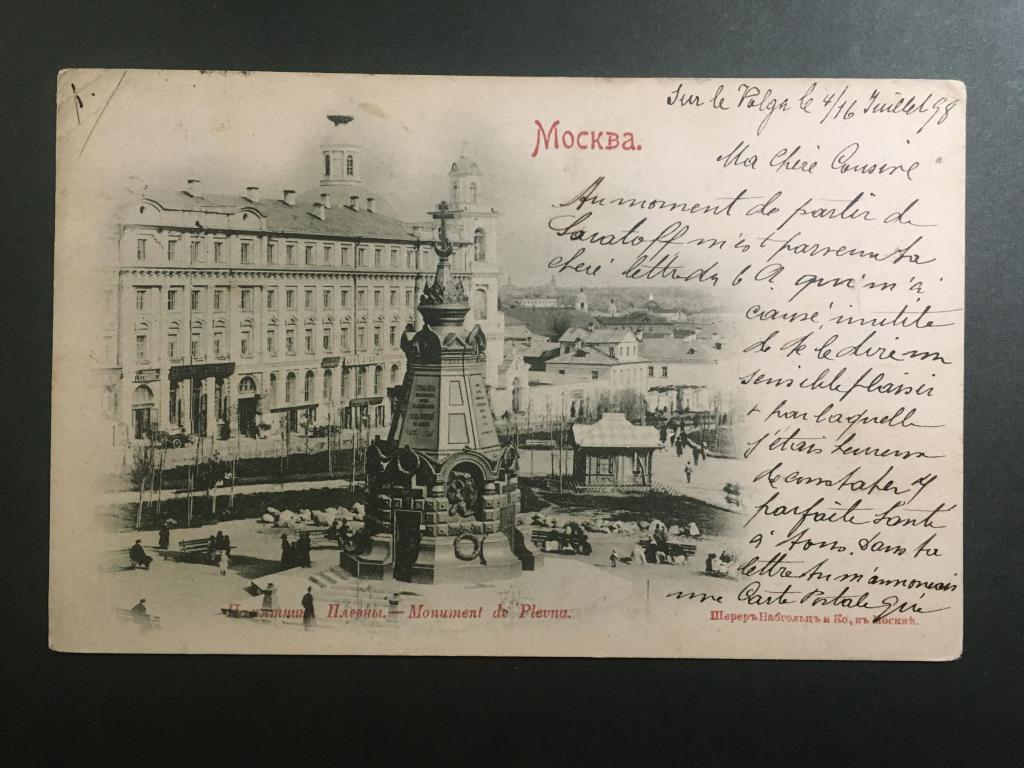 Sur le Volga le 4/16 Juillet 98
Москва.
Ma chère Cousine
Au moment de partir de
Saratoff m'est parvenu ta
chère lettre du 6 qui m'a
causé, inutile
de te le dire un
sensible plaisir
+ par laquelle
j'étais heureux
de constater
parfaite santé
à tous. Dans ta
lettre tu m'annonçais
une Carte Postale que
Памятникъ Плевны. — Monument de Plevna.
Шереръ Набгольцъ и Ко., въ Москвѣ.